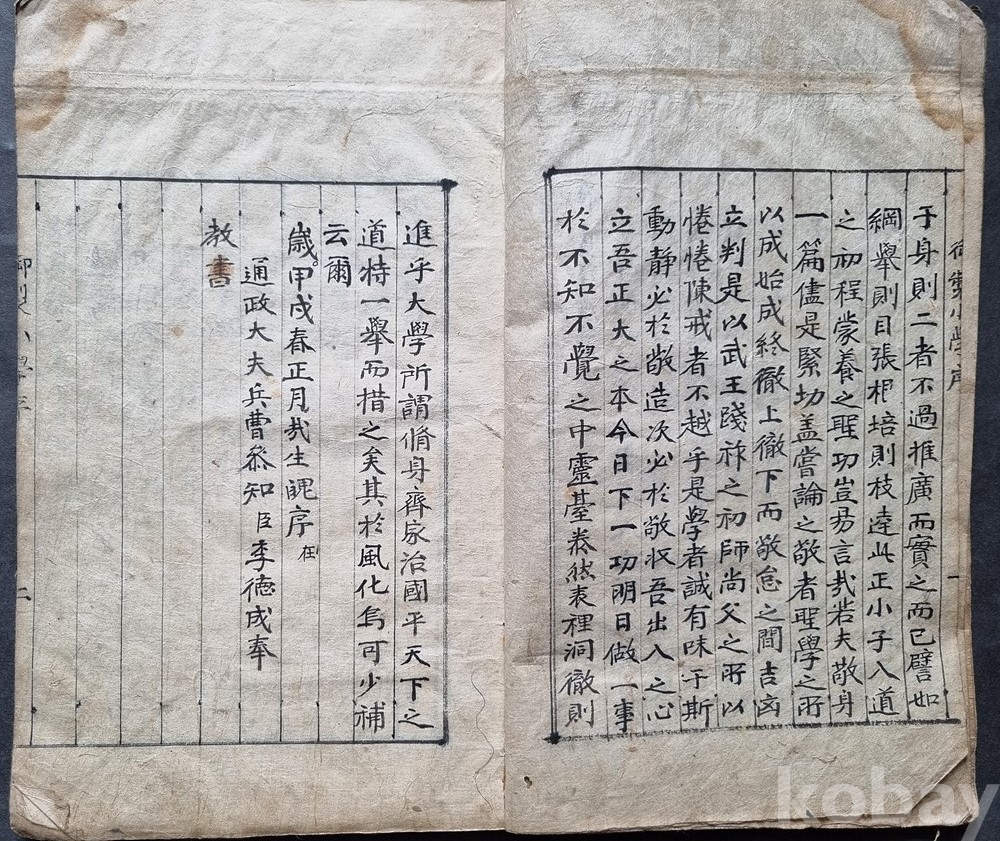 御製小學序
于身則二者不過推廣而實之而已譬如
綱舉則目張根培則枝達此正小子入道
之初程蒙養之聖功豈易言哉若夫敬身
一篇儘是緊切盖嘗論之敬者聖學之所
以成始成終徹上徹下而敬怠之間吉凶
立判是以武王踐祚之初師尚父之所以
惓惓陳戒者不越乎是學者誠有味于斯
動靜必於敬造次必於敬收吾出入之心
立吾正大之本今日下一功明日做一事
於不知不覺之中靈䑓泰然表裡洞徹則
一
進乎大學所謂脩身齊家治國平天下之
道特一舉而措之矣其於風化烏可少補
云爾
歲甲戌春正月哉生魄序 在
通政大夫兵曹叅知臣李德成奉
教書
御製小學序
二
kobay